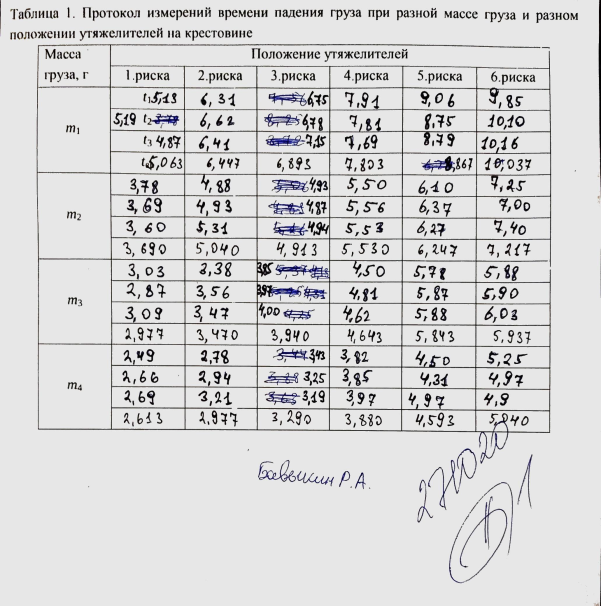 Таблица 1. Протокол измерений времени падения груза при разной массе груза и разном
положении утяжелителей на крестовине
Масса груза, г
Положение утяжелителей
1.риска 2.риска 3.риска 4.риска 5.риска 6.риска
m₁
t₁5,13 6,31 6,75 7,91 9,06 9,85
5,19 t₂ 6,62 6,78 7,81 8,75 10,10
t₃ 4,87 6,41 7,15 7,69 8,79 10,16
5,063 6,447 6,893 7,803 8,867 10,037
m₂
3,78 4,88 4,93 5,50 6,10 7,25
3,69 4,93 4,87 5,56 6,37 7,00
3,60 5,31 4,94 5,53 6,27 7,40
3,690 5,040 4,913 5,530 6,247 7,217
m₃
3,03 3,38 3,85 4,50 5,78 5,88
2,87 3,56 3,97 4,81 5,87 5,90
3,09 3,47 4,00 4,62 5,88 6,03
2,977 3,470 3,940 4,643 5,843 5,937
m₄
2,49 2,78 3,43 3,82 4,50 5,25
2,66 2,94 3,25 3,85 4,31 4,97
2,69 3,21 3,19 3,97 4,97 4,9
2,613 2,977 3,290 3,880 4,593 5,040
Бавыкин Р.А.